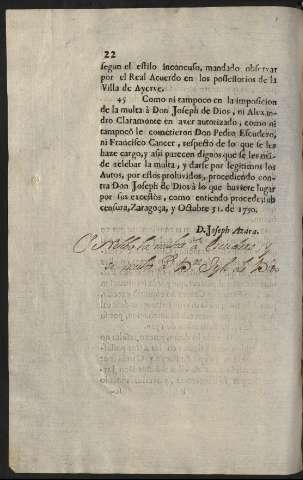 22
segun el estilo inconcuso, mandado observar
por el Real Acuerdo en los possessorios de la
Villa de Ayerve.
45 Como ni tampoco en la imposicion
de la multa à Don Joseph de Dios, ni Alexan-
dro Claramonte en aver autorizado, como ni
tampocò le cometieron Don Pedro Escudero,
ni Francisco Cancer, respecto de lo que se les
haze cargo, y assi parecen dignos que se les mã-
de relebar la multa, y darse por legitimos los
Autos, por estos proluidos, procediendo con-
tra Don Joseph de Dios à lo que huviere lugar
por sus excessos, como entiendo procede, sub
censura, Zaragoça, y Octubre 31. de 1730.
D. Joseph Azara.
la multa à Escudero, y